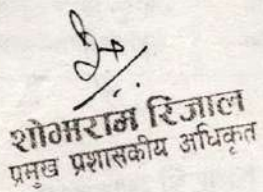 शोभाराम रिजाल
प्रमुख प्रशासकीय अधिकृत